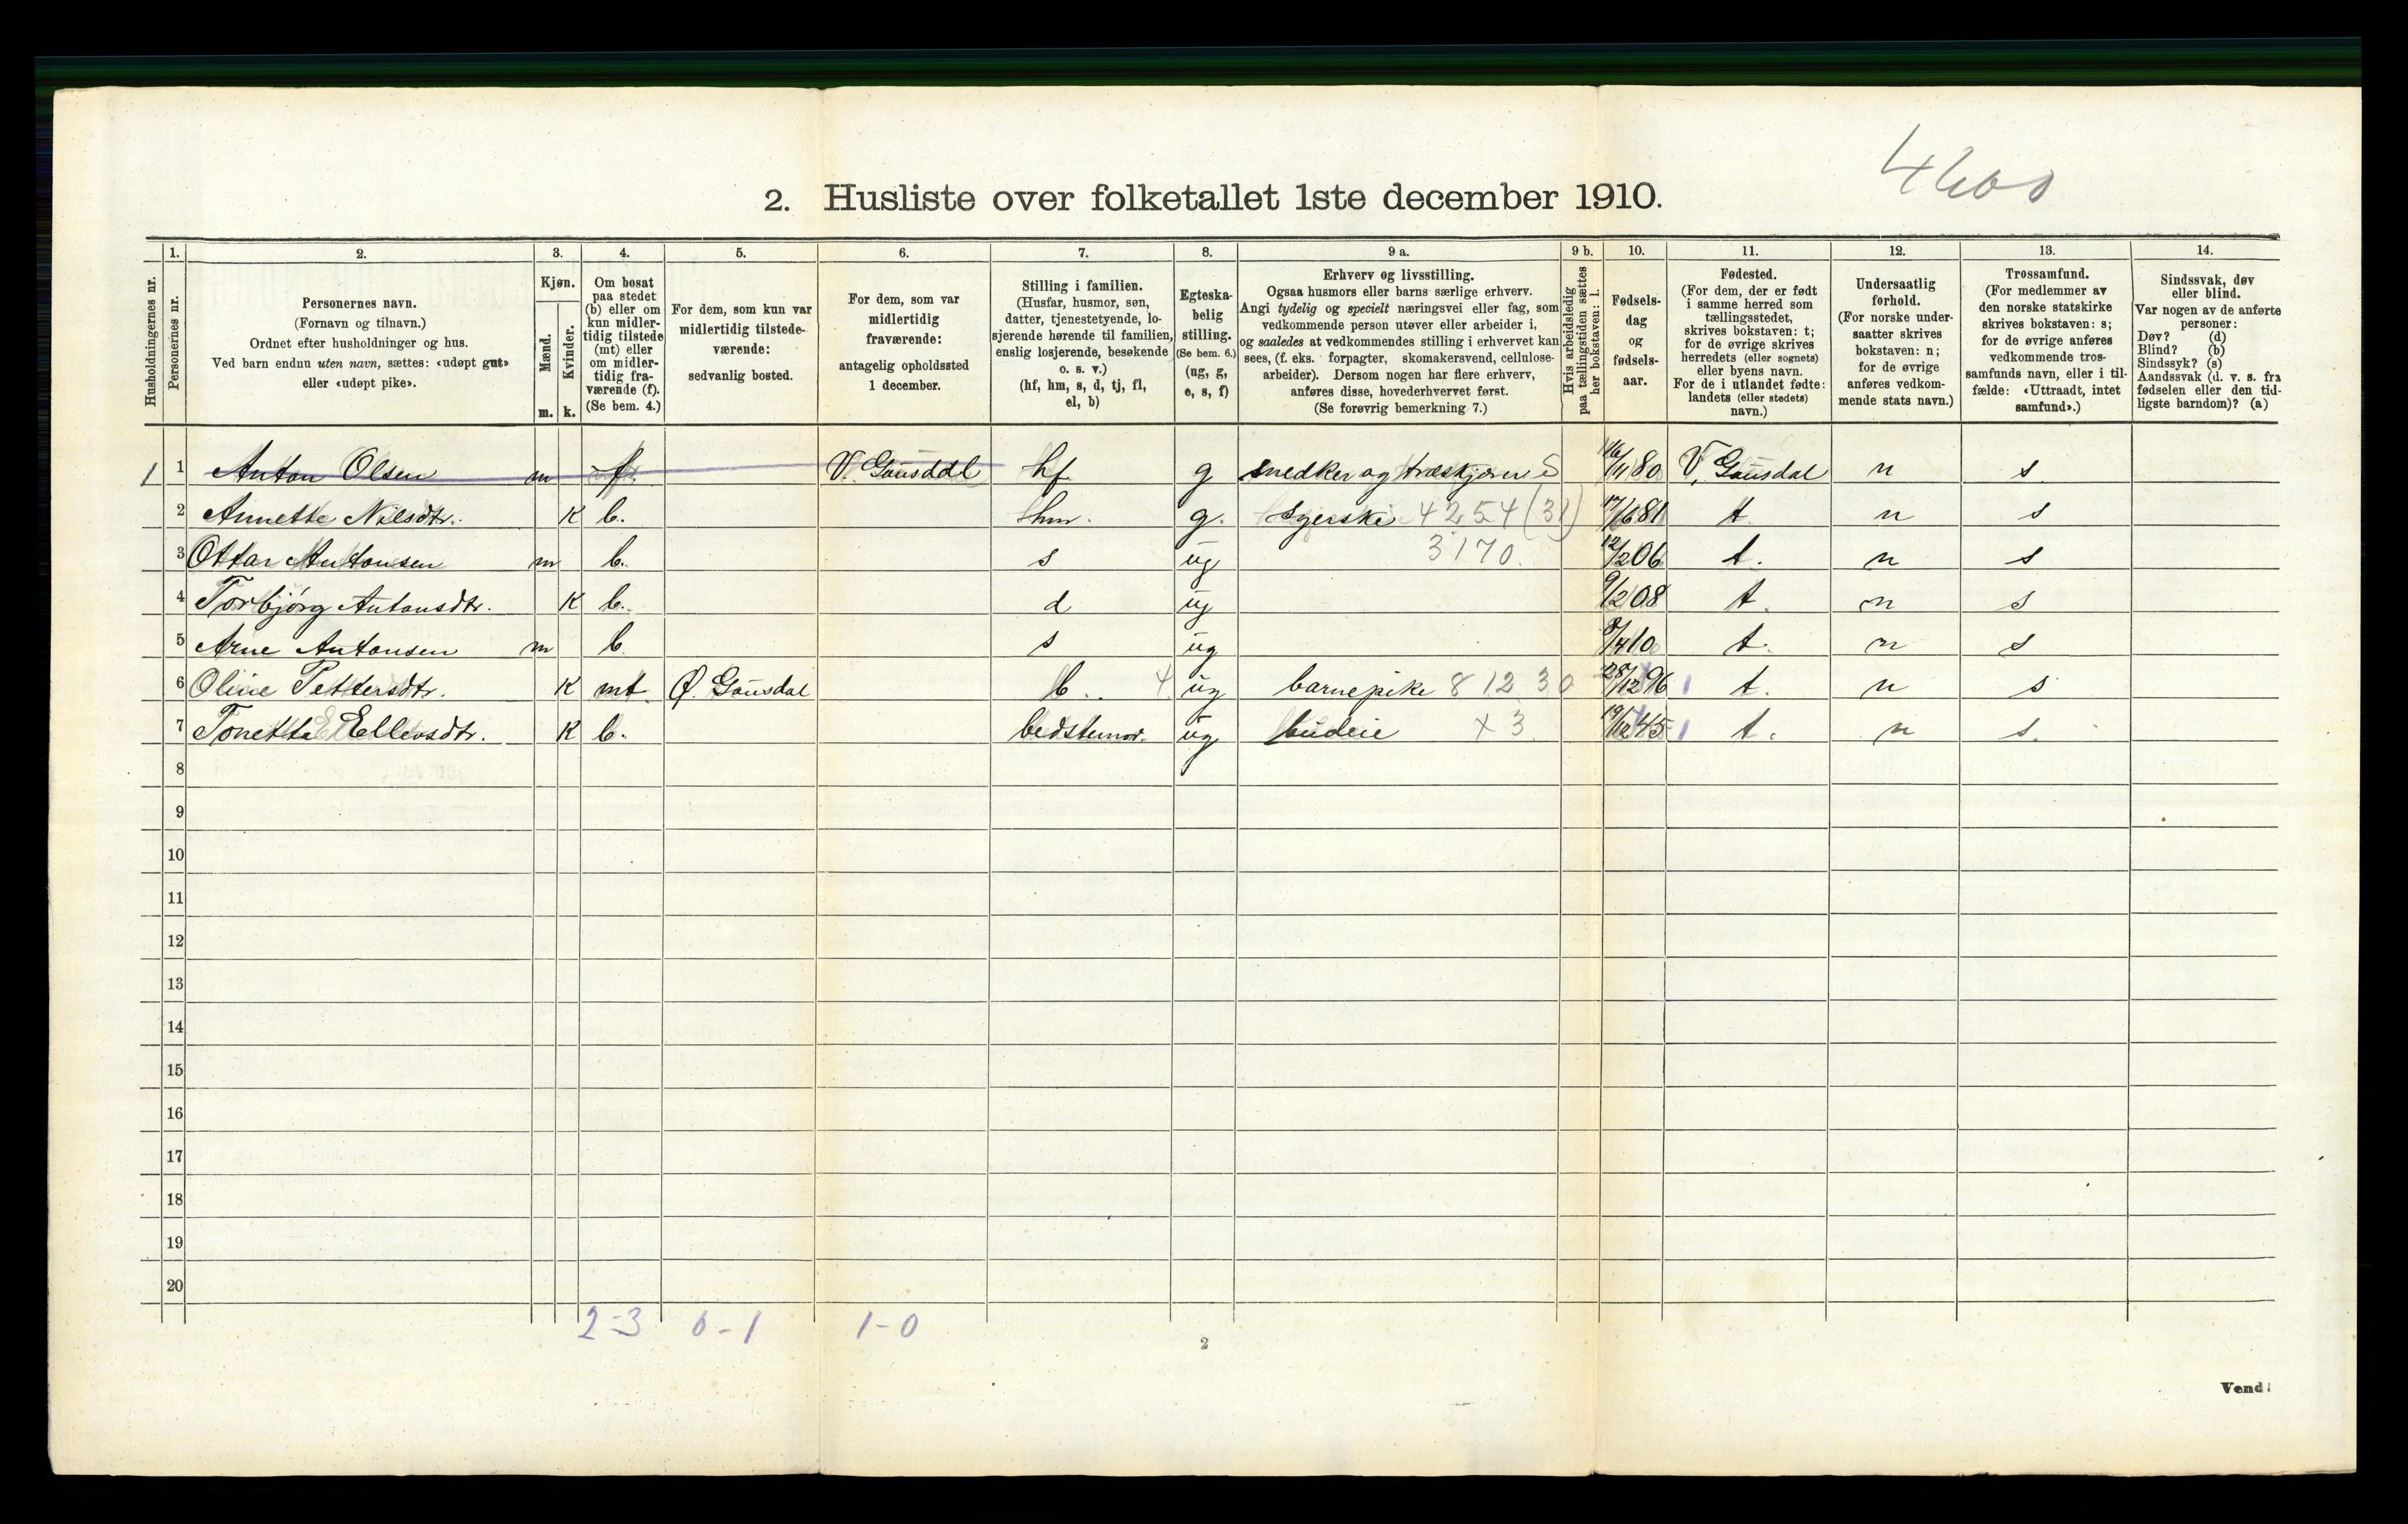 4600
2. Husliste over folketallet 1ste december 1910.
Husholdningernes nr.
1.
Personernes nr.
2.
Personernes navn.
(Fornavn og tilnavn.)
Ordnet efter husholdninger og hus.
Ved barn endnu uten navn, sættes: «udøpt gut»
eller «udøpt pike».
3.
Kjøn.
Mænd.
Kvinder.
m. k.
4.
Om bosat
paa stedet
(b) eller om
kun midler-
tidig tilstede
(mt) eller
om midler-
tidig fra-
værende (f).
(Se bem. 4.)
5.
For dem, som kun var
midlertidig tilstede-
værende:
sedvanlig bosted.
6.
For dem, som var
midlertidig
fraværende:
antagelig opholdssted
1 december.
7.
Stilling i familien.
(Husfar, husmor, søn,
datter, tjenestetyende, lo-
sjerende hørende til familien,
enslig losjerende, besøkende
o. s. v.)
(hf, hm, s, d, tj, fl,
el, b)
8.
Egteska-
belig
stilling.
(Se bem. 6.)
(ug, g,
e, s, f)
9 a.
Erhverv og livsstilling.
Ogsaa husmors eller barns særlige erhverv.
Angi tydelig og specielt næringsvei eller fag, som
vedkommende person utøver eller arbeider i,
og saaledes at vedkommendes stilling i erhvervet kan
sees, (f. eks. forpagter, skomakersvend, cellulose-
arbeider). Dersom nogen har flere erhverv,
anføres disse, hovederhvervet først.
(Se forøvrig bemerkning 7.)
9 b.
Hvis arbeidsledig
paa tællingstiden sættes
her bokstaven: l.
10.
Fødsels-
dag
og
fødsels-
aar.
11.
Fødested.
(For dem, der er født
i samme herred som
tællingsstedet,
skrives bokstaven: t;
for de øvrige skrives
herredets (eller sognets)
eller byens navn.
For de i utlandet fødte:
landets (eller stedets)
navn.)
12.
Undersaatlig
forhold.
(For norske under-
saatter skrives
bokstaven: n;
for de øvrige
anføres vedkom-
mende stats navn.)
13.
Trossamfund.
(For medlemmer av
den norske statskirke
skrives bokstaven: s;
for de øvrige anføres
vedkommende tros-
samfunds navn, eller i til-
fælde: «Uttraadt, intet
samfund».)
14.
Sindssvak, døv
eller blind.
Var nogen av de anførte
personer:
Døv? (d)
Blind? (b)
Sindssyk? (s)
Aandssvak (d. v. s. fra
fødselen eller den tid-
ligste barndom)? (a)
1 1 Anton Olsen m f V. Gausdal hf g snedker og træskjærer S 16/11 80 V. Gausdal n s
2 Annette Nilsdtr. K b. hm. g. Syerske 4254 (31) 17/6 81 t n s
3 Ottar Antonsen m b. s ug 3170. 12/2 06 t. n s
4 Torbjørg Antonsdtr. K b. d ug 9/2 08 t. n s
5 Arne Antonsen m b. s ug 8/4 10 t. n s
6 Oline Pettersdtr. K mt. Ø. Gausdal b. 4 ug barnepike 8 12 30 28/12 96 1 t. n s
7 Tonetta Ellevsdtr. K b. bedstemor. ug budeie x 3 19/12 45 1 t. n s.
8
9
10
11
12
13
14
15
16
17
18
19
20
2-3 0-1 1-0
2
Vend!